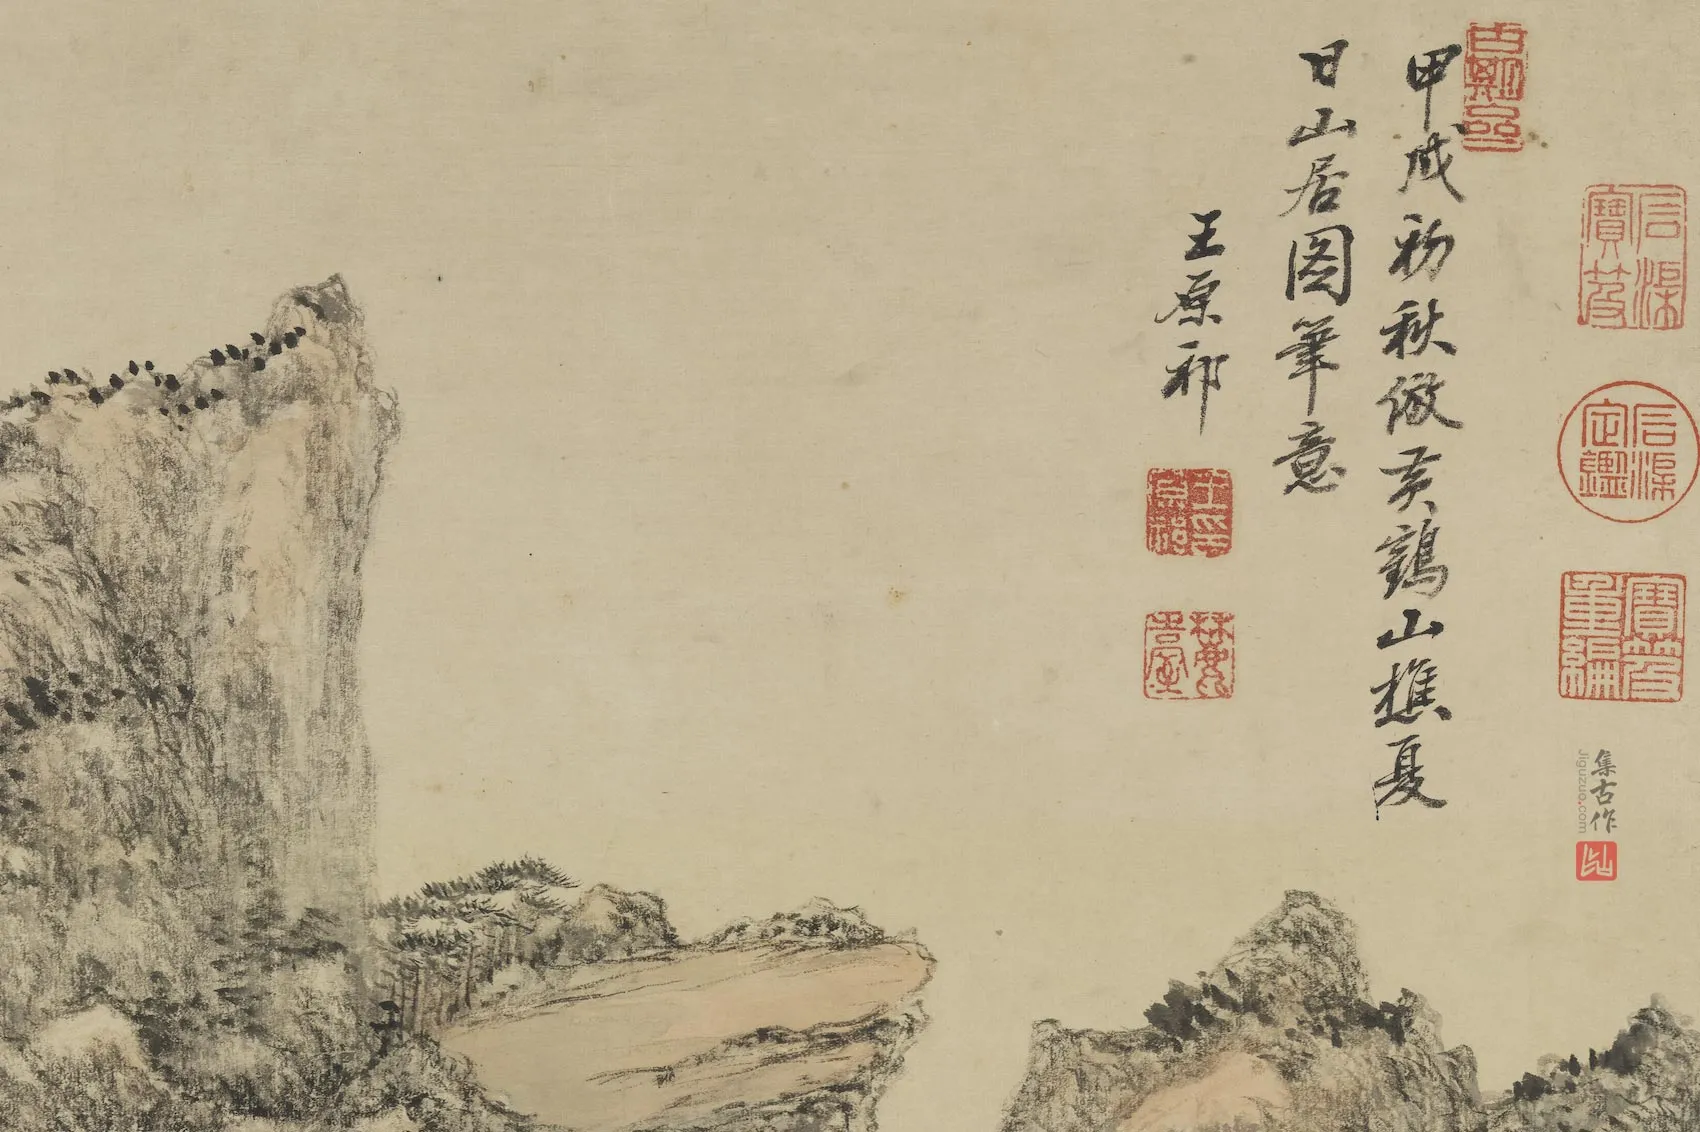 甲戌初秋倣黄鶴山樵夏
日山居图筆意
王原祁
石渠寶笈
石渠定鑑
寶笈重編
王原祁印
麓臺
集古作
jiguzuo.com